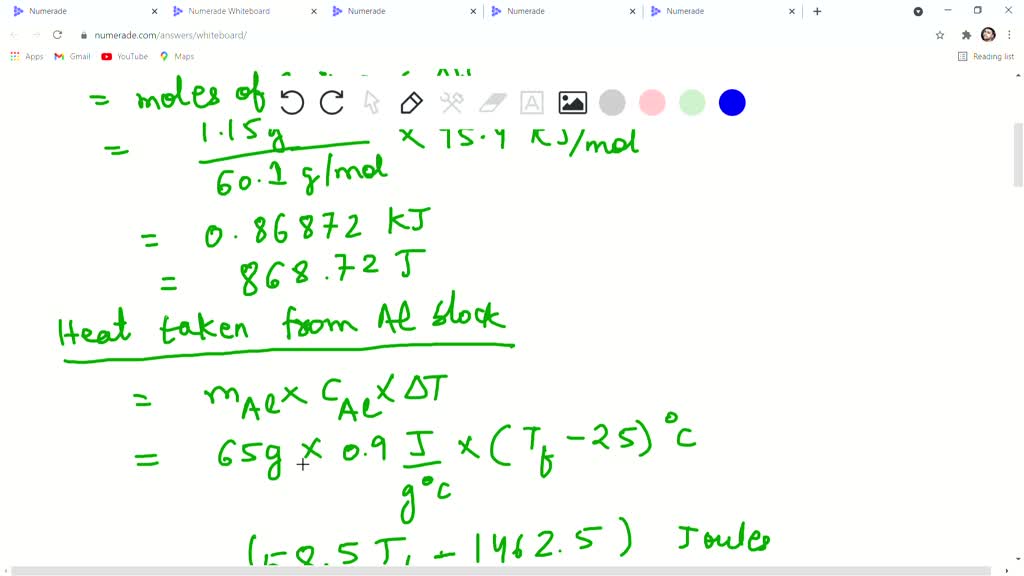 Numerade Numerade Whiteboard Numerade Numerade Numerade
numerade.com/answers/whiteboard/
Apps Gmail YouTube Maps Reading list
= moles of
= 1.15g / 60.1 g/mol × 75.4 KJ/mol
= 0.86872 KJ
= 868.72 J
Heat taken from Al block
= mAl × CAl × ΔT
= 65g × 0.9 J/g°C × (Tf - 25) °C
(58.5 Tf - 1462.5) Joules